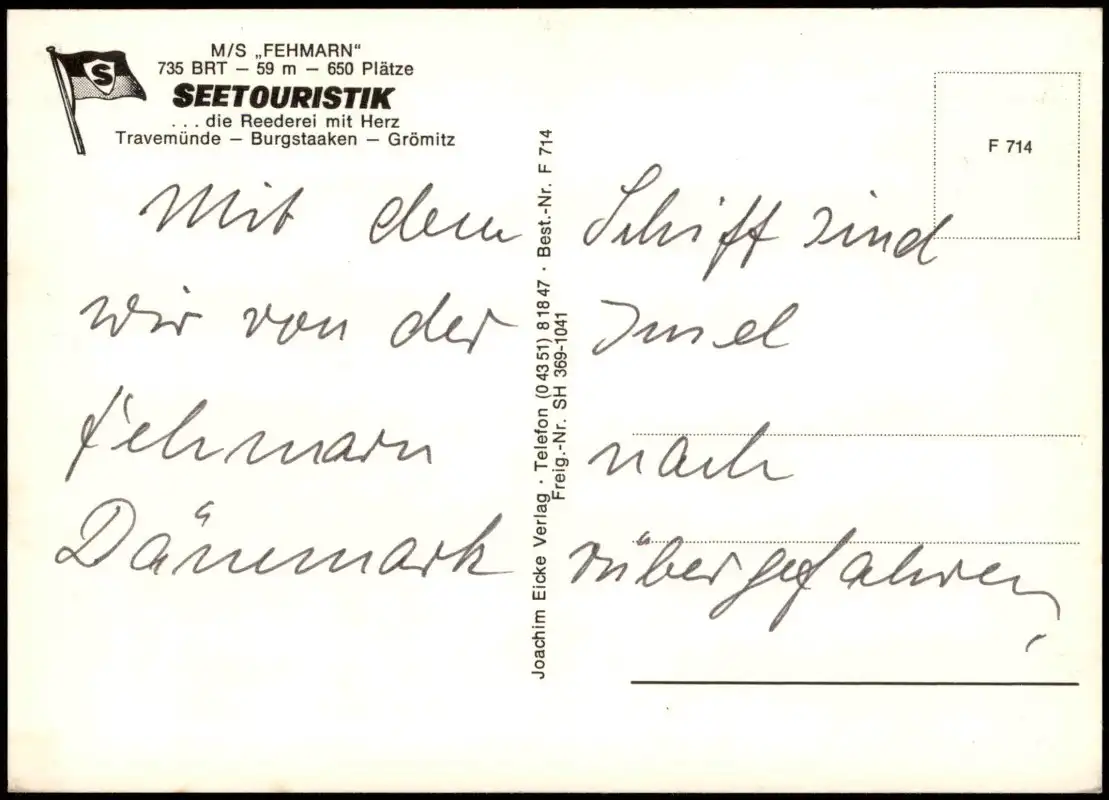 M/S „FEHMARN“
735 BRT – 59 m – 650 Plätze
S
SEETOURISTIK
... die Reederei mit Herz
Travemünde – Burgstaaken – Grömitz
F 714
Mit dem Schiff sind
wir von der Insel
Fehmarn nach
Dänemark rübergefahren,
Joachim Eicke Verlag · Telefon (0 43 51) 8 18 47 · Best.-Nr. F 714
Freig.-Nr. SH 369-1041